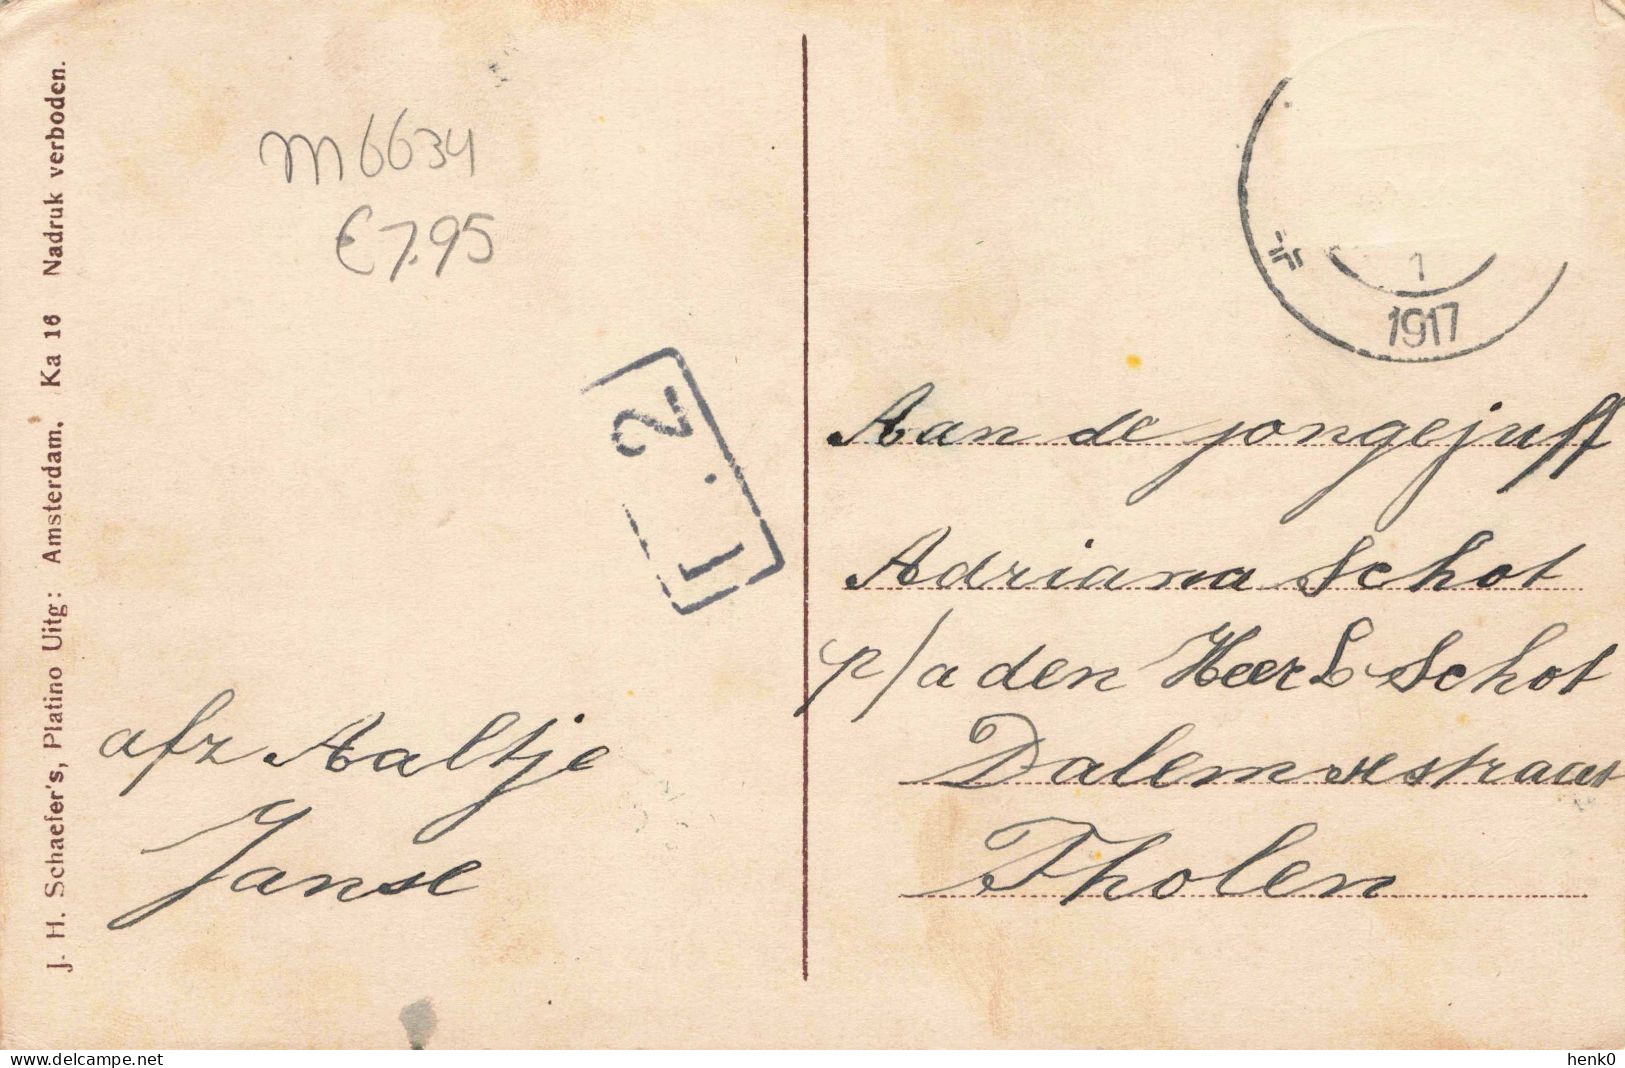 J. H. Schaefer's, Platino Uitg: Amsterdam. Ka 16 Nadruk verboden.
m6634
€7.95
1
1917
L. 2
Aan de jongejuff
Adriana Schot
p/a den Heer L Schot
Dalemsestraat
Tholen
afz Aaltje
Janse
www.delcampe.net
henk0